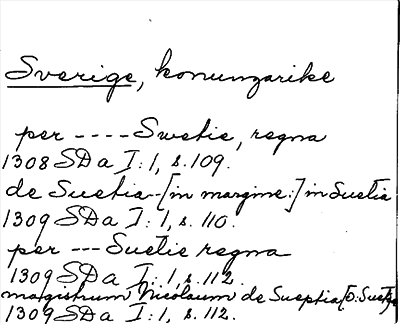 Sverige, konungarike
per ---- Swetie, regna
1308 SD a I:1, s.109.
de Suetia--[in margine:] in Suetia
1309 SD a I:1, s. 110.
per --- Suetie regna
1309 SD a I:1, s. 112.
magistrum Nicolaum de Sueptia [O: Suet
1309 SD a I:1, s. 112.